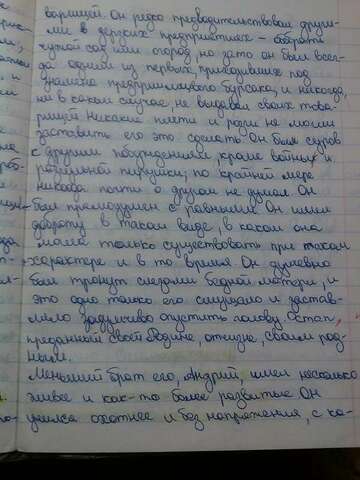 варищей. Он редко предводительствовал други-
ми в дерзких предприятиях – обобрать
чужой сад или огород, но зато он был всег-
да одним из первых, приходивших под
знамёна предприимчивого бурсака, и никогда,
ни в каком случае, не выдавал своих това-
рищей. Никакие плети и розги не могли
заставить его это сделать. Он был суров
к другим побуждениям, кроме войны и
разгульной пирушки; по крайней мере
никогда почти о другом не думал. Он
был прямодушен с равными. Он имел
доброту в таком виде, в каком она
могла только существовать при таком
характере и в то время. Он душевно
был тронут слезами бедной матери, и
это одно только его смущало и застав-
ляло задумчиво опустить голову. Остап,
преданный своей Родине, отчизне, своим род-
ным.
Меньший брат его, Андрий, имел несколько
живее и как-то более развитые. Он
учился охотнее и без напряжения, с ка-